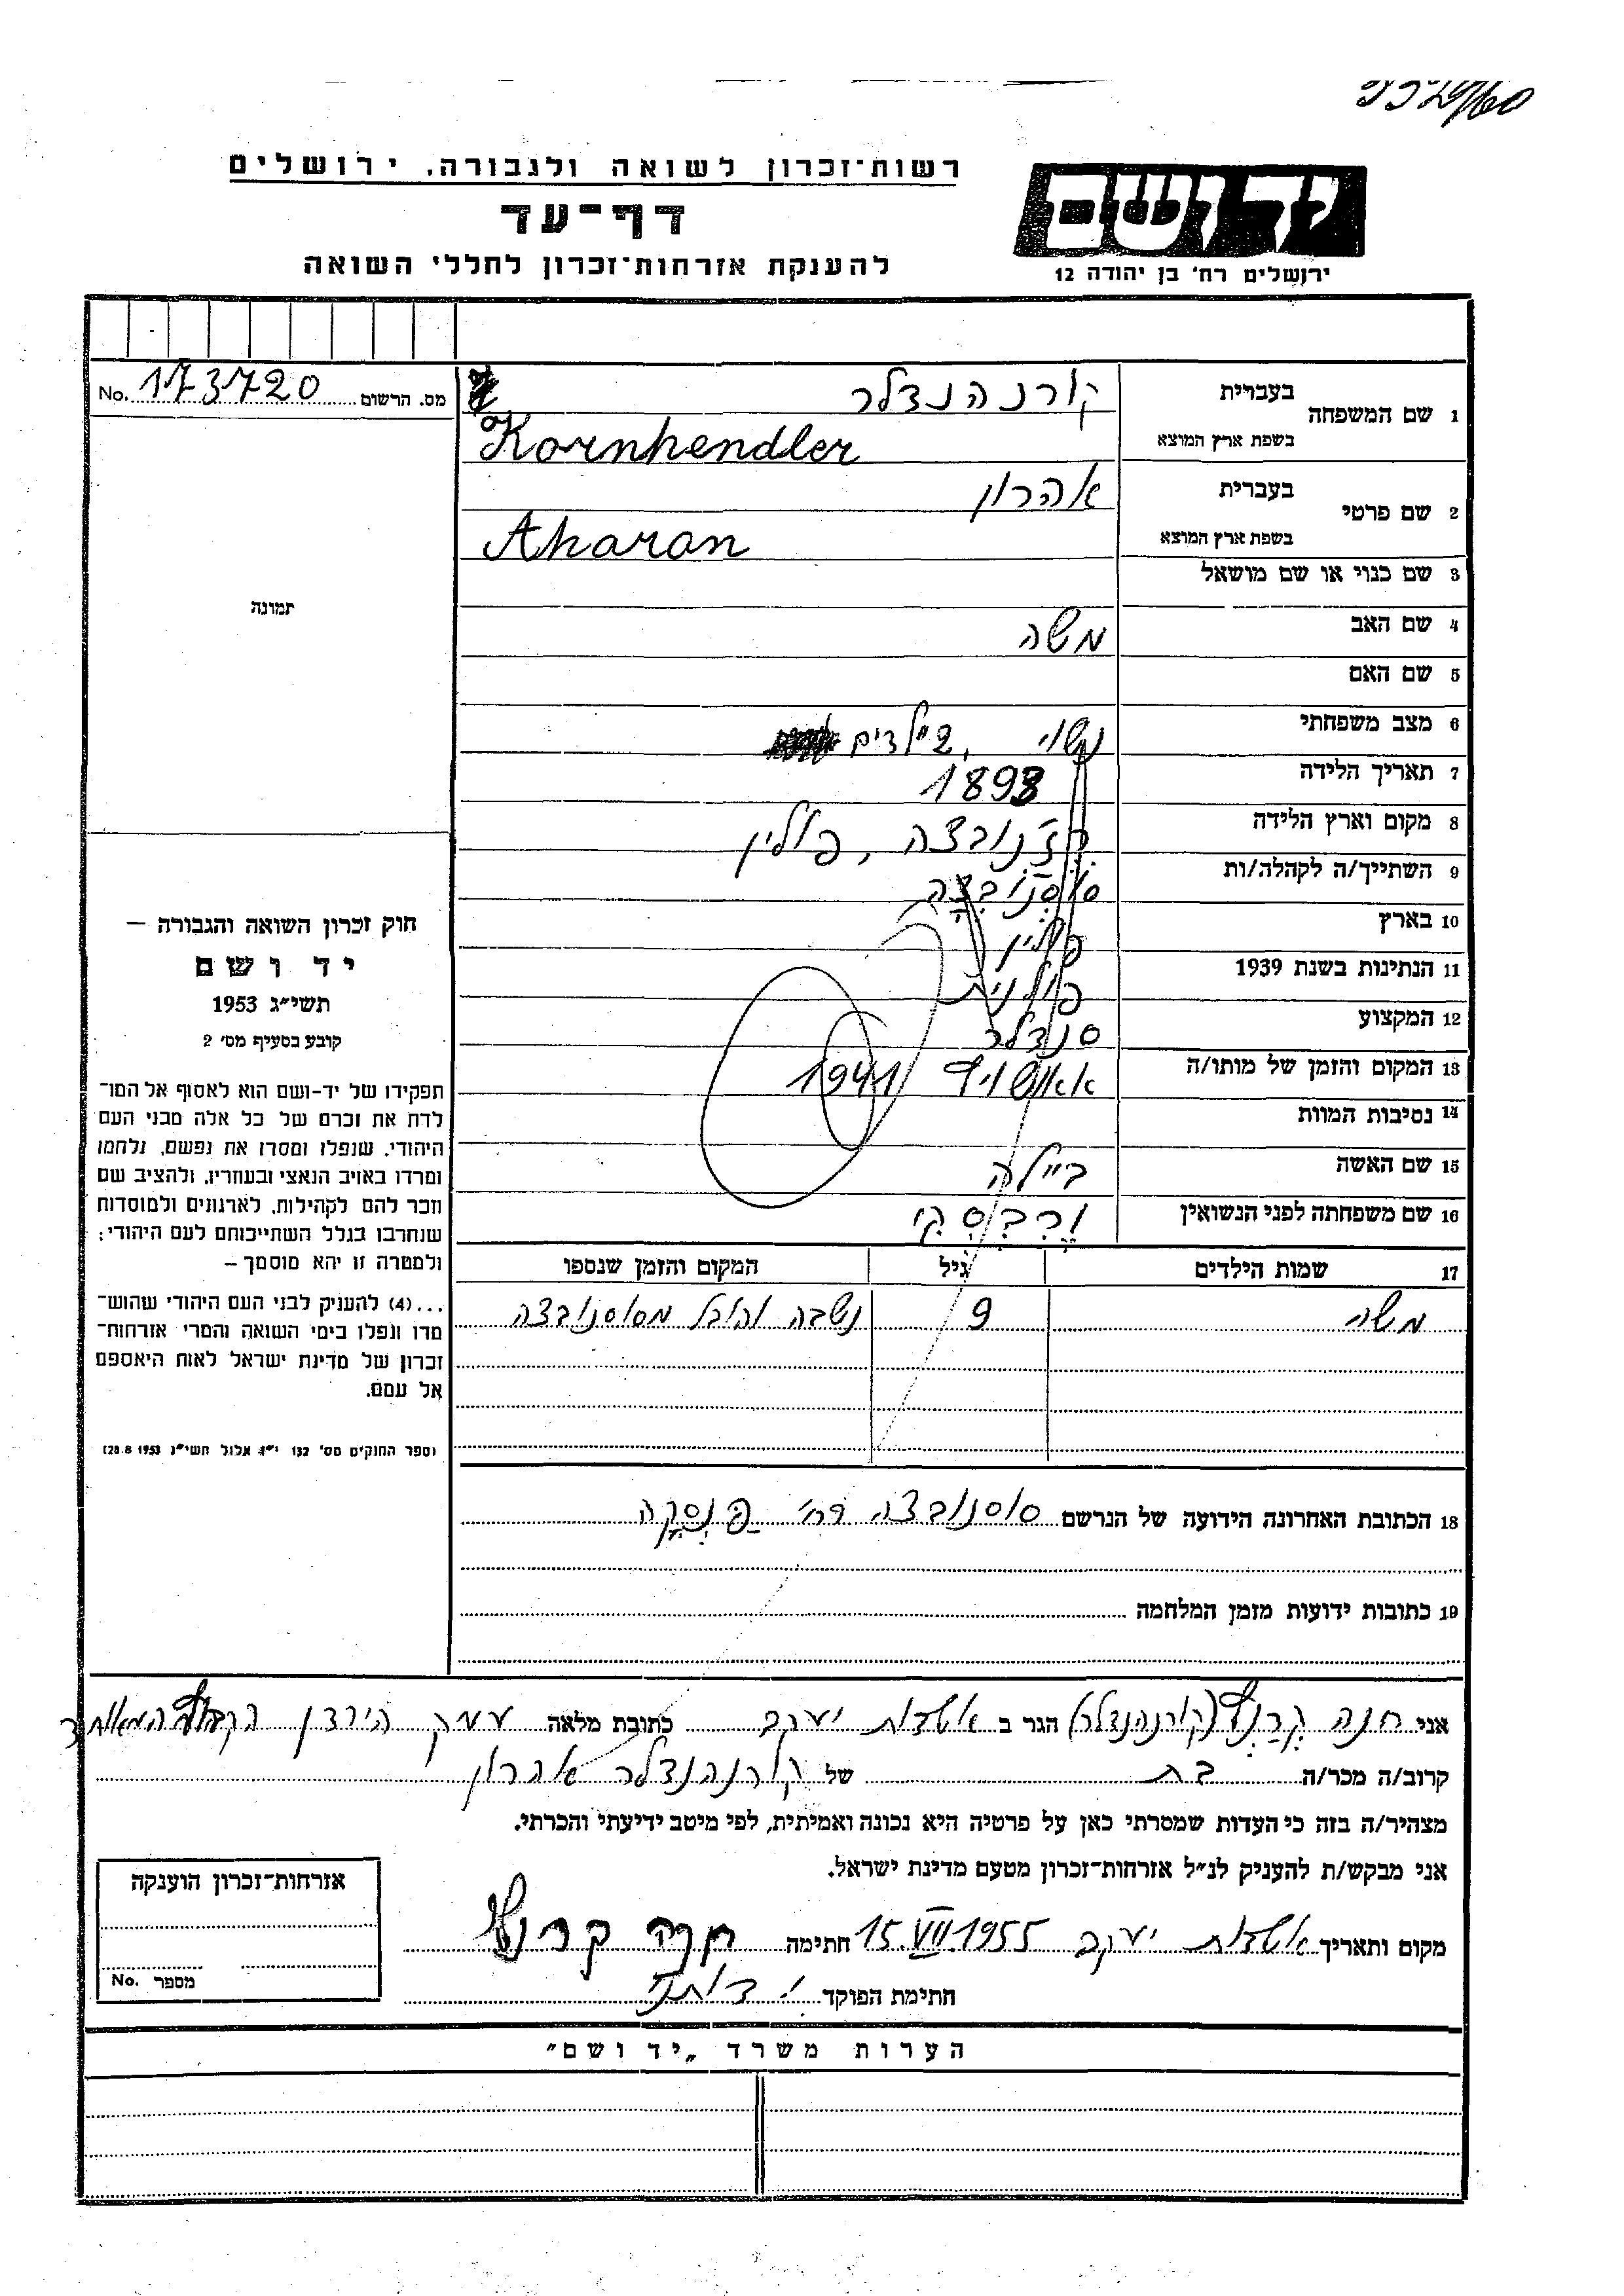 רשות־זכרון לשואה ולגבורה, ירושלים
דף־עד
להענקת אזרחות־זכרון לחללי השואה
יד ושם
ירושלים רח' בן יהודה 12
מס. הרשום 173720 No.
1 שם המשפחה
בעברית
קורנהנדלר
בשפת ארץ המוצא
Kornhendler
2 שם פרטי
בעברית
אהרון
בשפת ארץ המוצא
Aharon
3 שם כנוי או שם מושאל
4 שם האב משה
5 שם האם
6 מצב משפחתי נשוי
7 תאריך הלידה 1893
8 מקום וארץ הלידה פולין
9 השתייך/ה לקהלה/ות סוסנובצה
10 בארץ פולין
11 הנתינות בשנת 1939 פולנית
12 המקצוע סנדלר
13 המקום והזמן של מותו/ה 1941
14 נסיבות המוות
15 שם האשה ביילה
16 שם משפחתה לפני הנשואין
17 שמות הילדים גיל המקום והזמן שנספו
משה 9 נשבה והובל מסוסנובצה
18 הכתובת האחרונה הידועה של הנרשם סוסנובצה רח'
19 כתובות ידועות מזמן המלחמה
תמונה
חוק זכרון השואה והגבורה —
יד ושם
תשי״ג 1953
קובע בסעיף מס' 2
תפקידו של יד-ושם הוא לאסוף אל המו־
לדת את זכרם של כל אלה מבני העם
היהודי, שנפלו ומסרו את נפשם, נלחמו
ומרדו באויב הנאצי ובעוזריו, ולהציב שם
וזכר להם לקהילות, לארגונים ולמוסדות
שנחרבו בגלל השתייכותם לעם היהודי;
ולמטרה זו יהא מוסמך —
...(4) להעניק לבני העם היהודי שהוש־
מדו ונפלו בימי השואה והמרי אזרחות־
זכרון של מדינת ישראל לאות היאספם
אל עמם.
(ספר החוקים מס' 132 י״ז אלול תשי״ג 28.8.1953)
אני חנה (קורנהנדלר) הגר ב אשדות יעקב כתובת מלאה עמק הירדן
קרוב/ה מכר/ה בת של קורנהנדלר אהרון
מצהיר/ה בזה כי העדות שמסרתי כאן על פרטיה היא נכונה ואמיתית, לפי מיטב ידיעתי והכרתי.
אני מבקש/ת להעניק לנ״ל אזרחות־זכרון מטעם מדינת ישראל.
מקום ותאריך אשדות יעקב 15.VII.1955 חתימה חנה
חתימת הפוקד
אזרחות־זכרון הוענקה
מספר No.
הערות משרד „יד ושם״